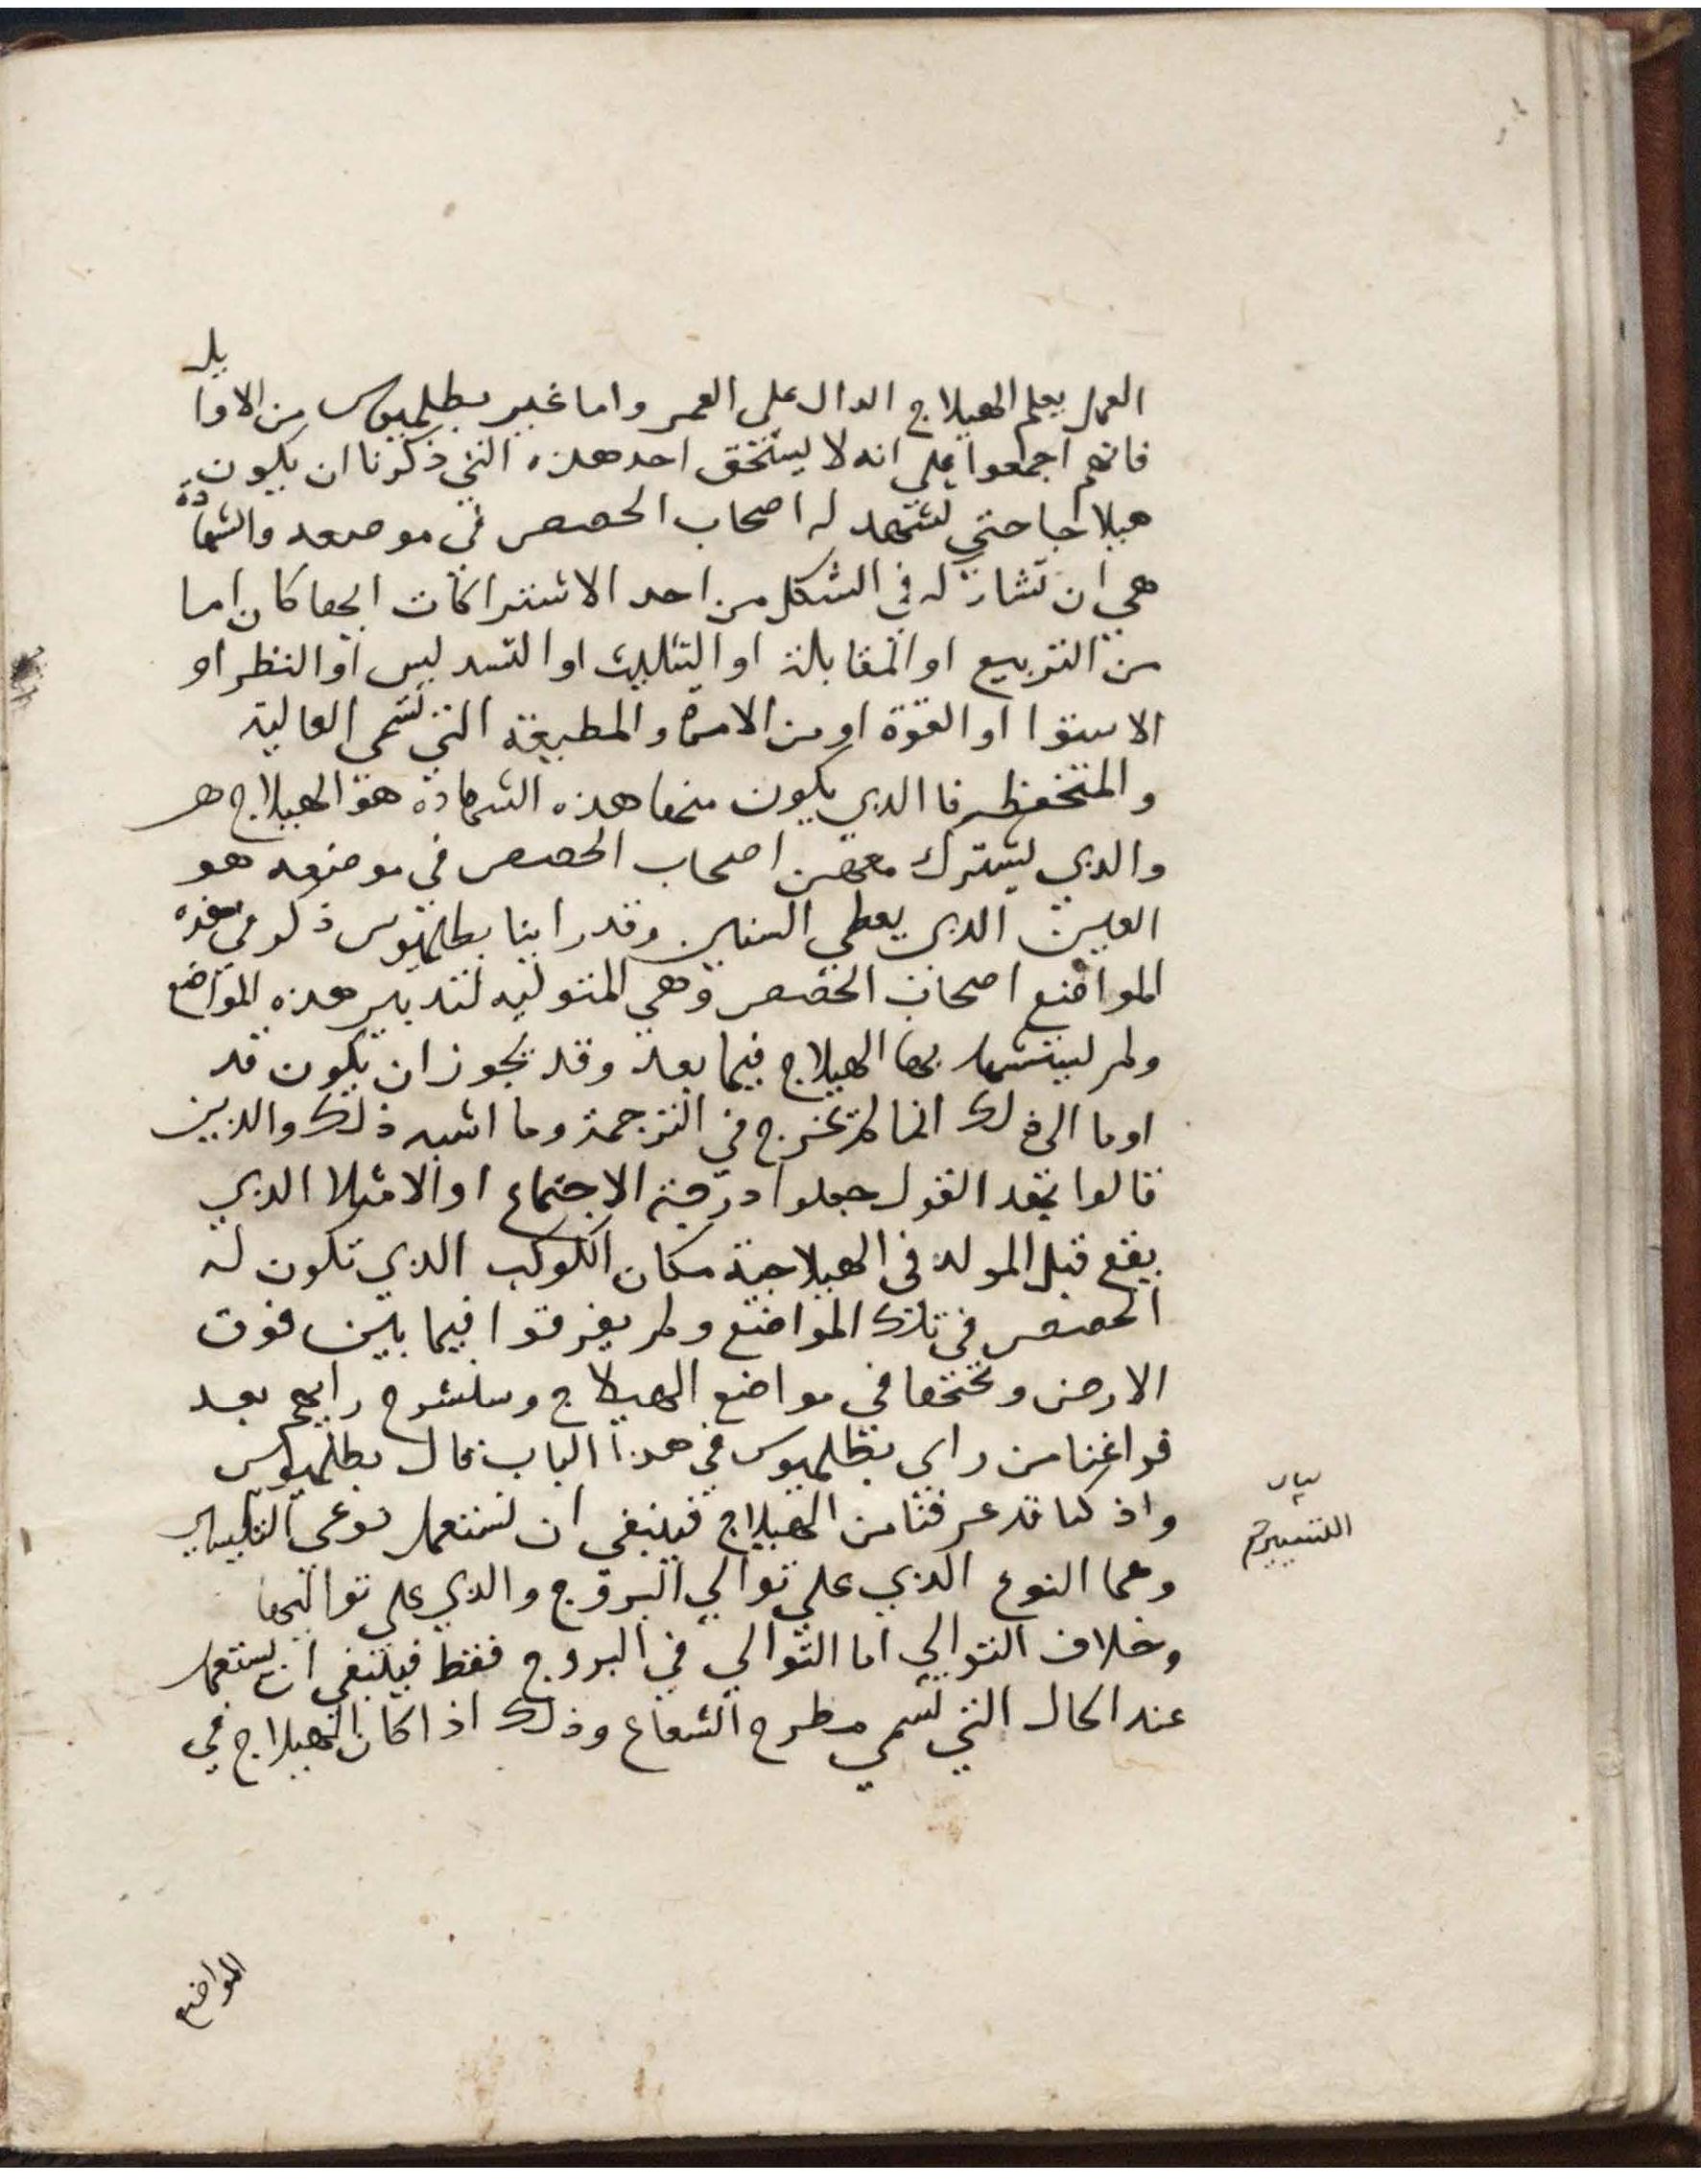 العمل يعلم الهيلاج الدال على العمر واما غير بطلميوس من الاوايل
فانهم اجمعوا على انه لا يستحق احد هذه التي ذكرنا ان يكون
هيلاجا حتي تشهد له اصحاب الحصص في موضعه والشهادة
هي ان تشارك له في الشكل من احد الاشتراكات ايها كان اما
من التربيع او المقابلة او التثليث او التسديس او النظر او
الاستوا او القوة او من الامرة والمطيعة التي تسمى العالية
والمنخفظه فا الذي يكون منها هذه الشهادة هو الهيلاج هـ
والذي يشترك معه من اصحاب الحصص في موضعه هو
الذي يعطي السنين وقد راينا بطلميوس ذكر في هذه
المواضع اصحاب الحصص وهي المتوليه لتدبير هذه المواضع
ولم يستشهد بها الهيلاج فيما بعد وقد يجوز ان يكون قد
اوما الى ذلك انما لم تخرج في الترجمة وما اشبه ذلك والذين
قالوا بهذا القول جعلوا درجة الاجتماع او الامتلا الذي
يقع قبل المولد في الهيلاجية مكان الكوكب الذي تكون له
الحصص في تلك المواضع ولم يفرقوا فيما بين فوق
الارض وتحتها في مواضع الهيلاج وسنشرح رايهم بعد
فراغنا من راي بطلميوس في هذا الباب قال بطلميوس
واذ كنا قد عرفنا من الهيلاج فينبغي ان نستعمل نوعي التسيير
وهما النوع الذي على توالي البروج والذي على تواليها
وخلاف التوالي اما التوالي في البروج فقط فينبغي ان نستعمل
عند الحال التي تسمي مطرح الشعاع وذلك اذا كان الهيلاج في
بيان
التسيير
المواضع